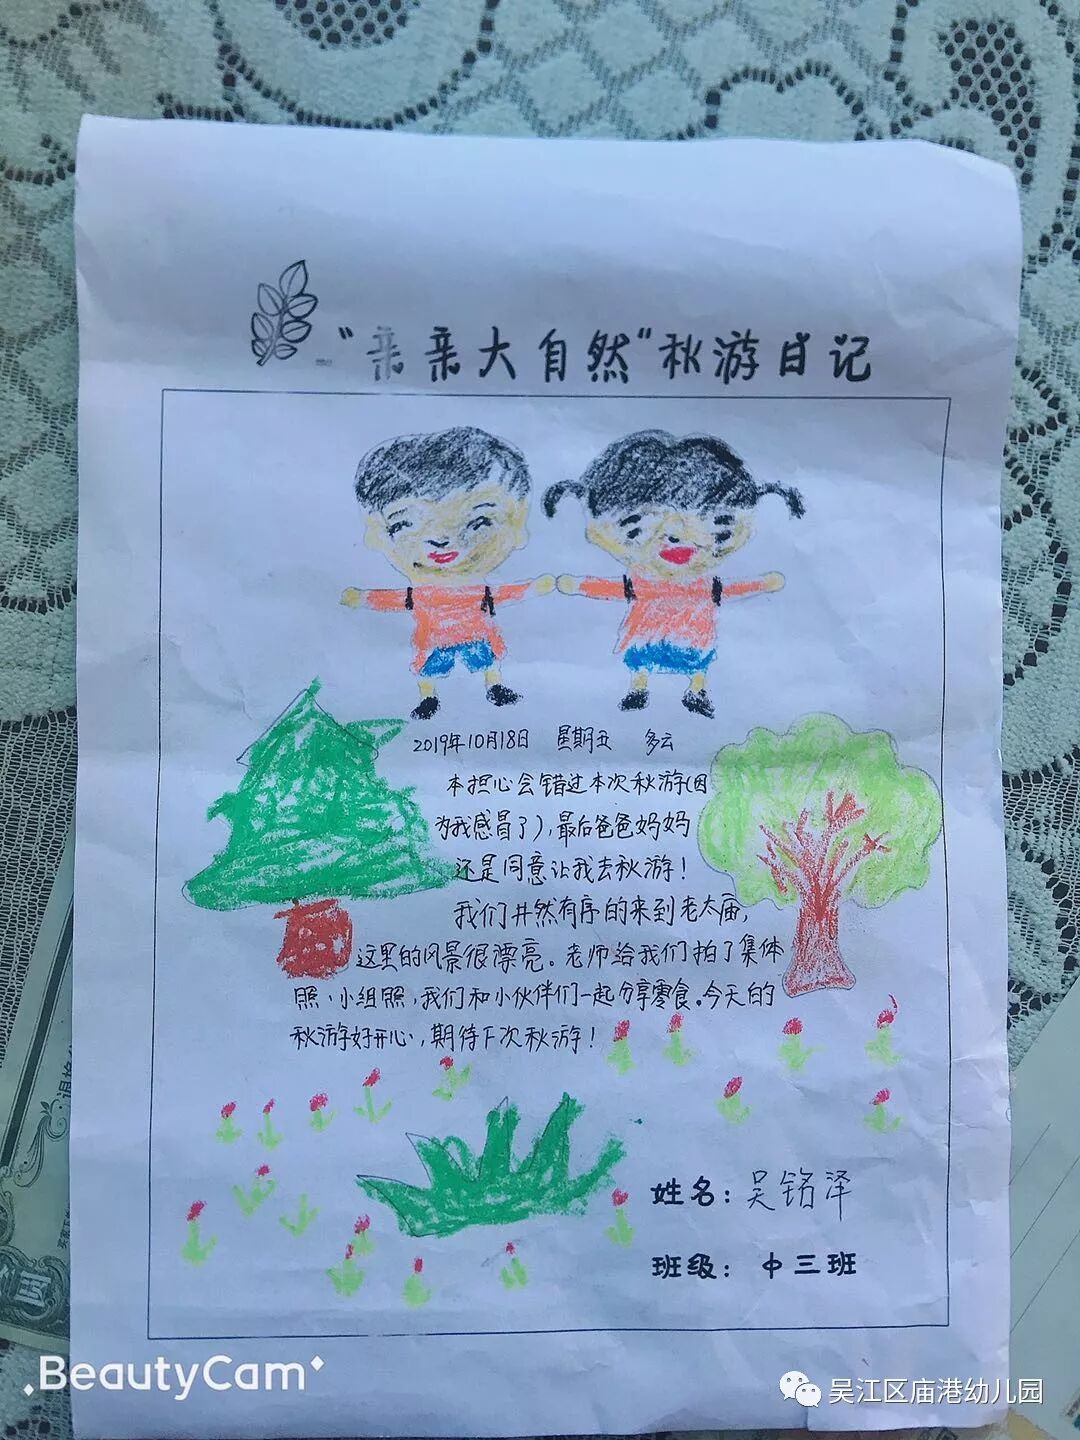 “亲亲大自然“秋游日记
2019年10月18日 星期五 多云
本担心会错过本次秋游(因
为我感冒了),最后爸爸妈妈
还是同意让我去秋游!
我们井然有序的来到老太庙,
这里的风景很漂亮。老师给我们拍了集体
照、小组照,我们和小伙伴们一起分享零食。今天的
秋游好开心,期待下次秋游!
姓名:吴铭泽
班级:中三班
BeautyCam
吴江区庙港幼儿园